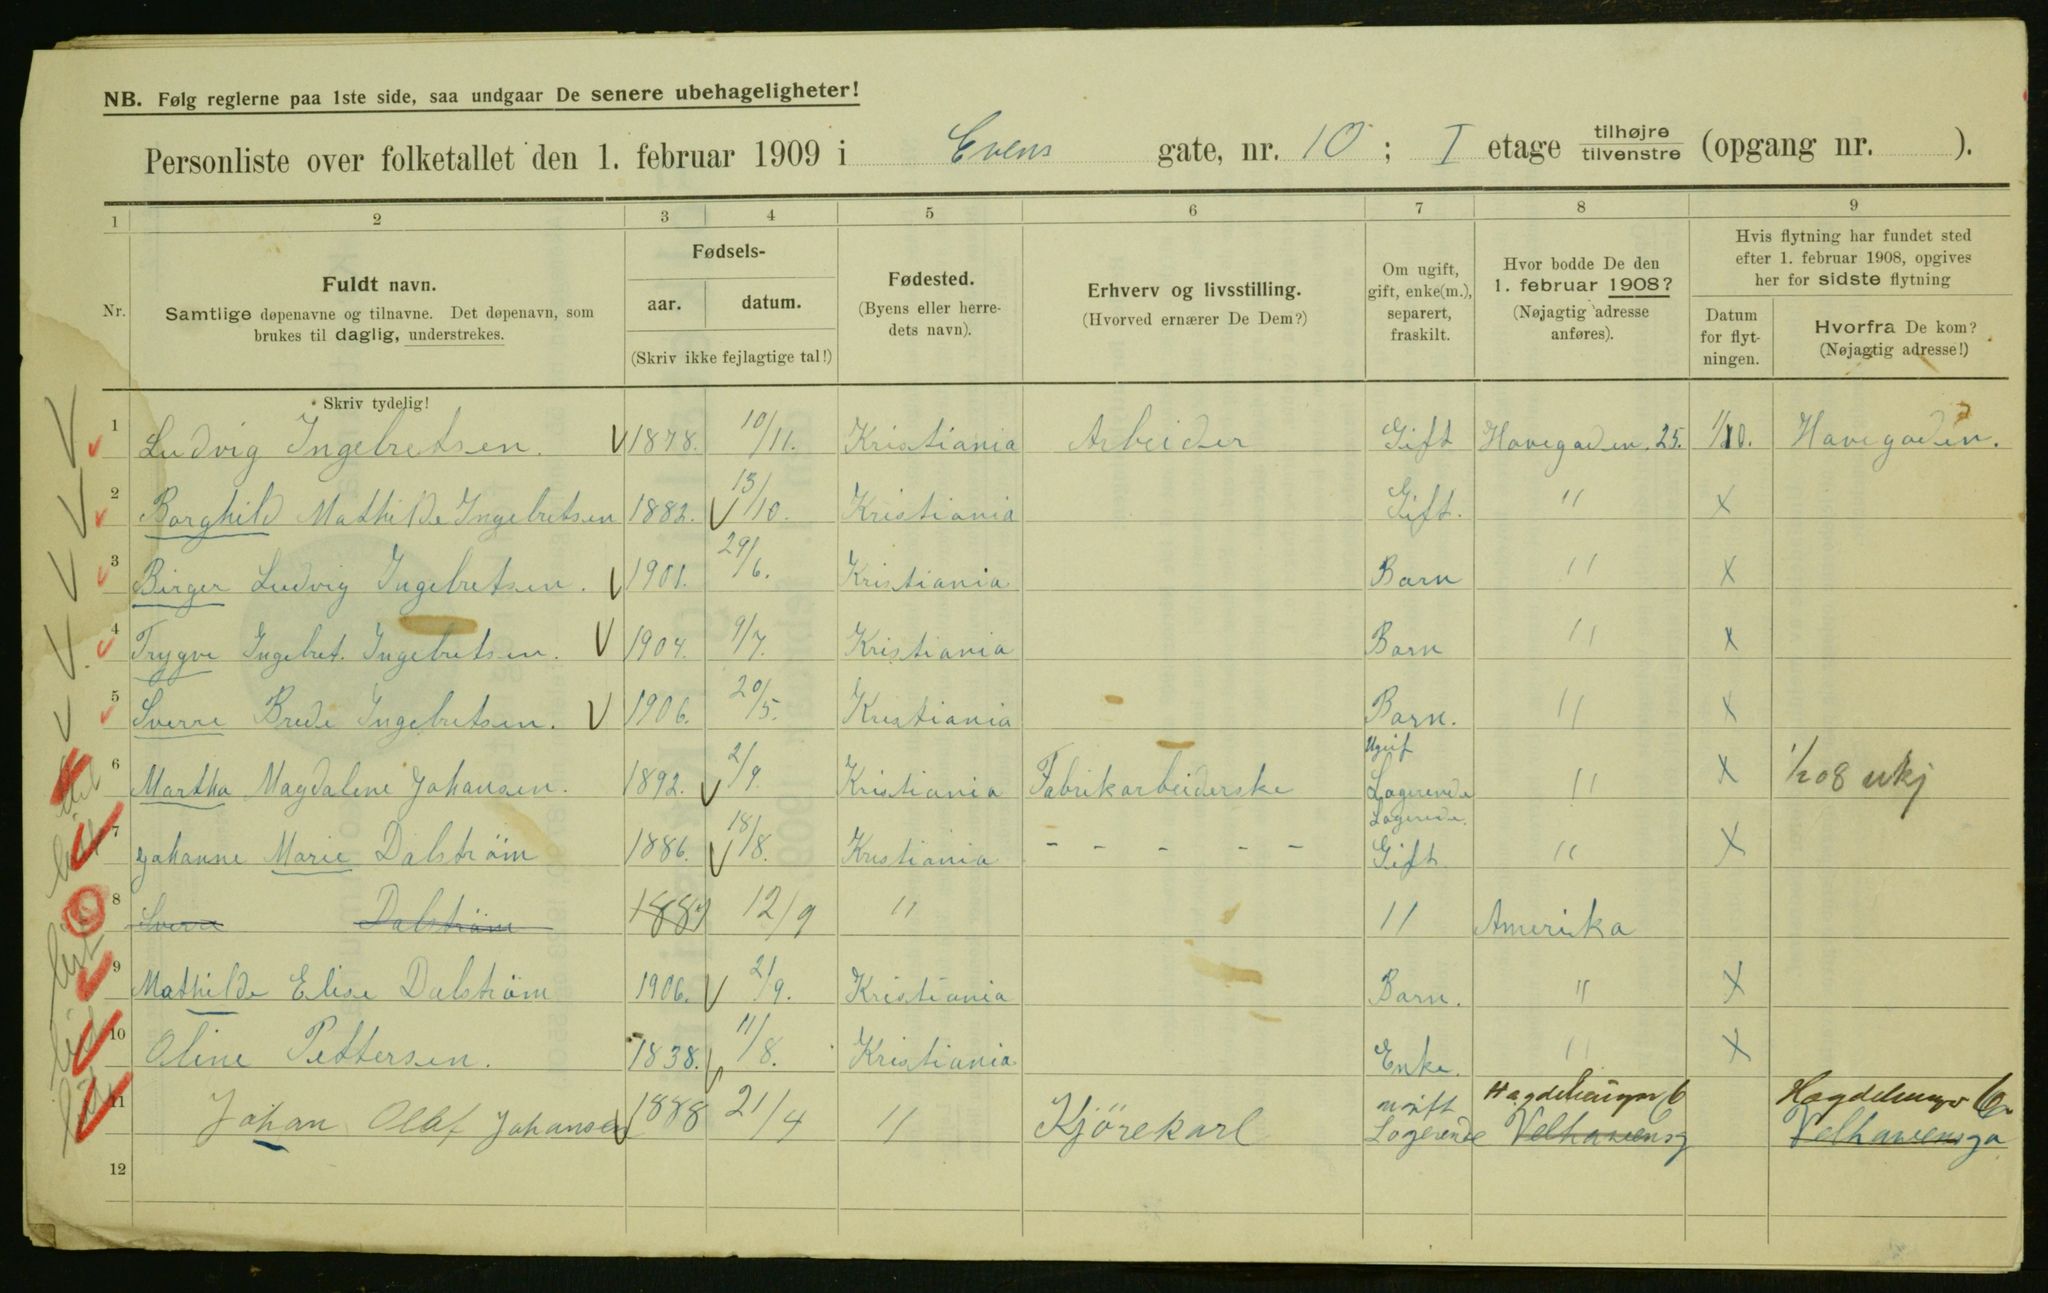 NB. Følg reglerne paa 1ste side, saa undgaar De senere ubehageligheter!
Personliste over folketallet den 1. februar 1909 i Evens gate, nr. 10 ; I etage tilhøjre tilvenstre (opgang nr. ).
1 2 3 4 5 6 7 8 9
Nr.
Fuldt navn.
Samtlige døpenavne og tilnavne. Det døpenavn, som
brukes til daglig, understrekes.
Skriv tydelig!
Fødsels-
aar. datum.
(Skriv ikke fejlagtige tal!)
Fødested.
(Byens eller herre-
dets navn).
Erhverv og livsstilling.
(Hvorved ernærer De Dem?)
Om ugift,
gift, enke(m.),
separert,
fraskilt.
Hvor bodde De den
1. februar 1908?
(Nøjagtig adresse
anføres).
Hvis flytning har fundet sted
efter 1. februar 1908, opgives
her for sidste flytning
Datum
for flyt-
ningen.
Hvorfra De kom?
(Nøjagtig adresse!)
1 Ludvig Ingebretsen. 1878. 10/11. Kristiania Arbeider Gift Havegaden. 25. 1/10. Havegaden.
2 Borghild Mathilde Ingebretsen 1882. 13/10. Kristiania Gift. " x
3 Birger Ludvig Ingebretsen. 1901. 29/6. Kristiania Barn " x
4 Trygve Ingebret. Ingebretsen. 1904. 9/7. Kristiania Barn " x
5 Sverre Brede Ingebretsen. 1906. 20/5. Kristiania Barn. " x
6 Martha Magdalene Johansen. 1892. 2/9. Kristiania Fabrikarbeiderske Ugif Logerende " x 1/2 08 ukj
7 Johanne Marie Dalstrøm 1886. 18/8. Kristiania - - - - - Logerede. Gift. " x
8 Sverre Dalstrøm 1884 12/9 " " Amerika
9 Mathilde Elise Dalstrøm 1906. 21/9. Kristiania Barn. " x
10 Oline Pettersen. 1838. 11/8. Kristiania Enke. " x
11 Johan Olaf Johansen 1888 21/4 " Kjörekarl ugift Logerende Velhavensg Velhavensga
12